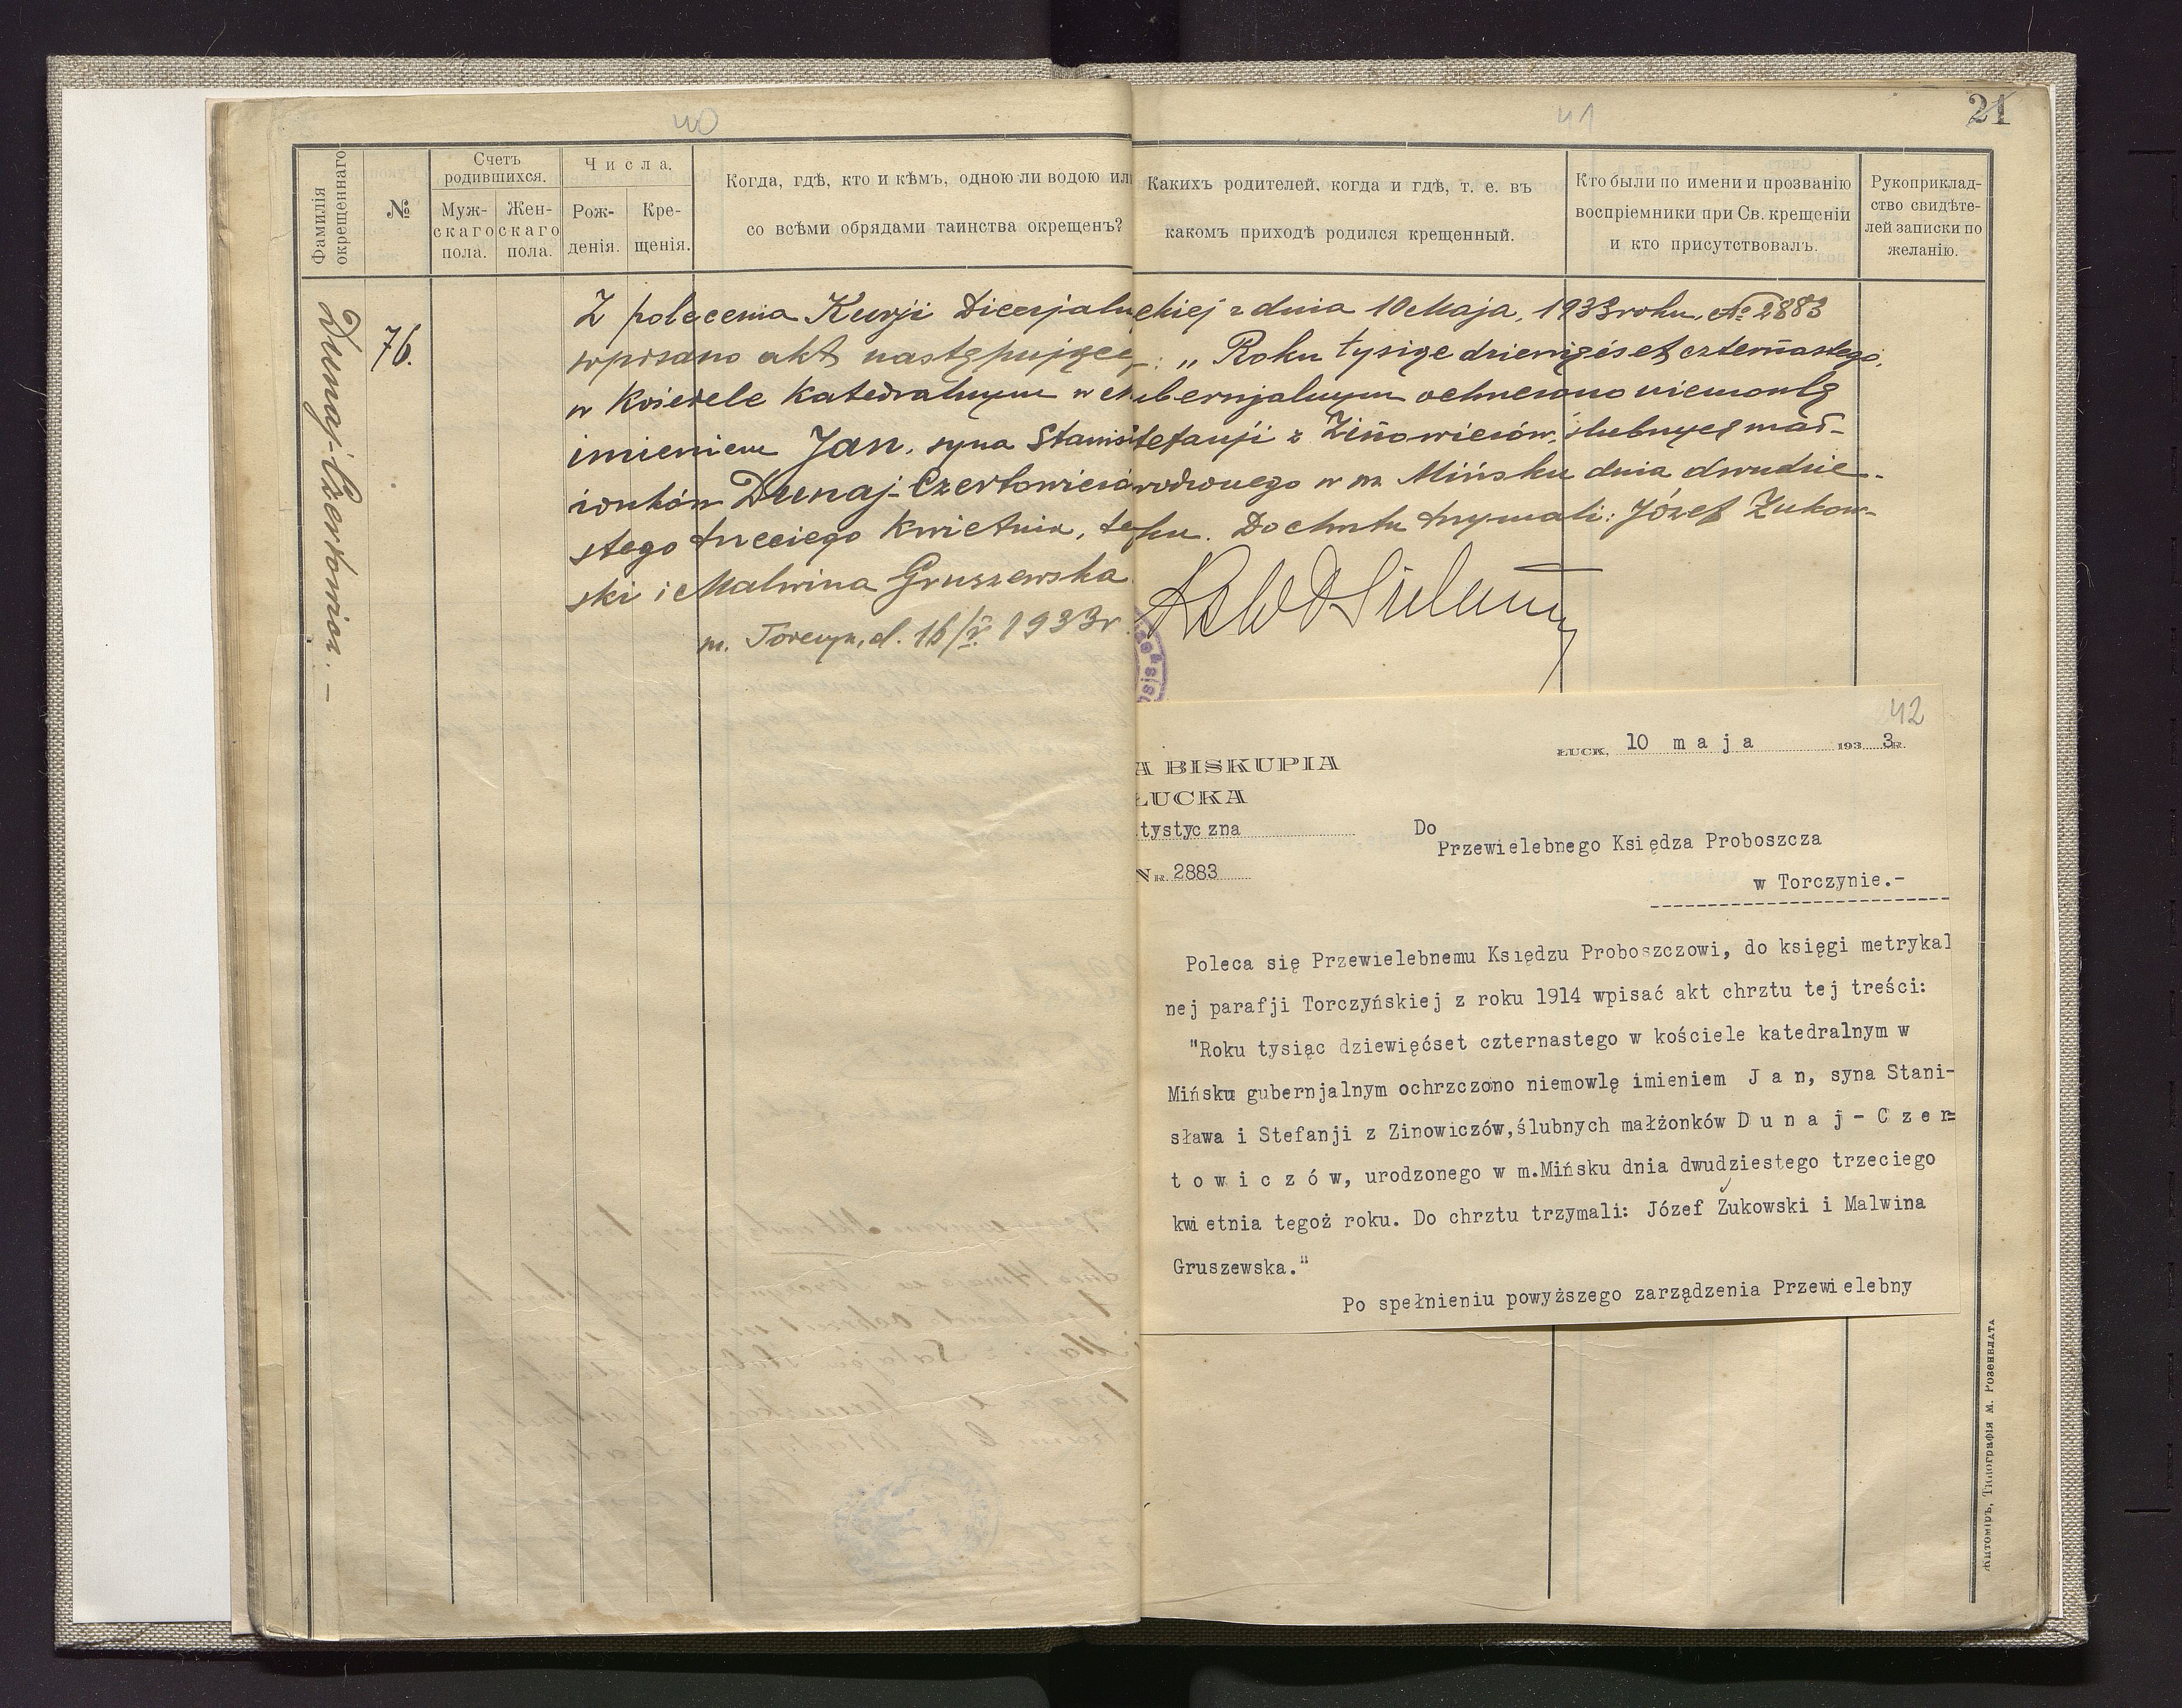 40
41
21
Фамилія окрещеннаго
№
Счетъ родившихся.
Муж-
скаго
пола.
Жен-
скаго
пола.
Числа.
Рож-
денія.
Кре-
щенія.
Когда, гдѣ, кто и кѣмъ, одною ли водою или
со всѣми обрядами таинства окрещенъ?
Какихъ родителей, когда и гдѣ, т. е. въ
какомъ приходѣ родился крещенный.
Кто были по имени и прозванію
воспріемники при Св. крещеніи
и кто присутствовалъ.
Рукоприклад-
ство свидѣте-
лей записки по
желанію.
Dunaj-Czertowicz. –
76.
Z polecenia Kurji Diecezjaln z dnia 10 Maja, 1933 roku, № 2883
wpisano akt następujący: „Roku tysiąc dziewięćset czternastego,
w Kościele Katedralnym w bernjalnym ochrzczono niemowlę
imieniem Jan, syna Stanis tefanji z Zinowiczów, ślubnych mał-
żonków Dunaj-Czertowiczó rodzonego w m. Mińsku dnia dwudzie-
stego trzeciego Kwietnia, te ku. Do chrztu trzymali: Józef Żukow-
ski i Malwina Gruszewska.
m. Torczyn, d. 16/V 1933 r.
42
ŁUCK, 10 maja 1933 R.
A BISKUPIA
ŁUCKA
tystyczna
Do
Przewielebnego Księdza Proboszcza
NR. 2883
w Torczynie.-
Poleca się Przewielebnemu Księdzu Proboszczowi, do księgi metrykal
nej parafji Torczyńskiej z roku 1914 wpisać akt chrztu tej treści:
"Roku tysiąc dziewięćset czternastego w kościele katedralnym w
Mińsku gubernjalnym ochrzczono niemowlę imieniem J a n, syna Stani-
sława i Stefanji z Zinowiczów, ślubnych małżonków D u n a j - C z e r=
t o w i c z ó w, urodzonego w m.Mińsku dnia dwudziestego trzeciego
kwietnia tegoż roku. Do chrztu trzymali: Józef Żukowski i Malwina
Gruszewska."
Po spełnieniu powyższego zarządzenia Przewielebny
Житомiръ, Типографiя М. Розенблата